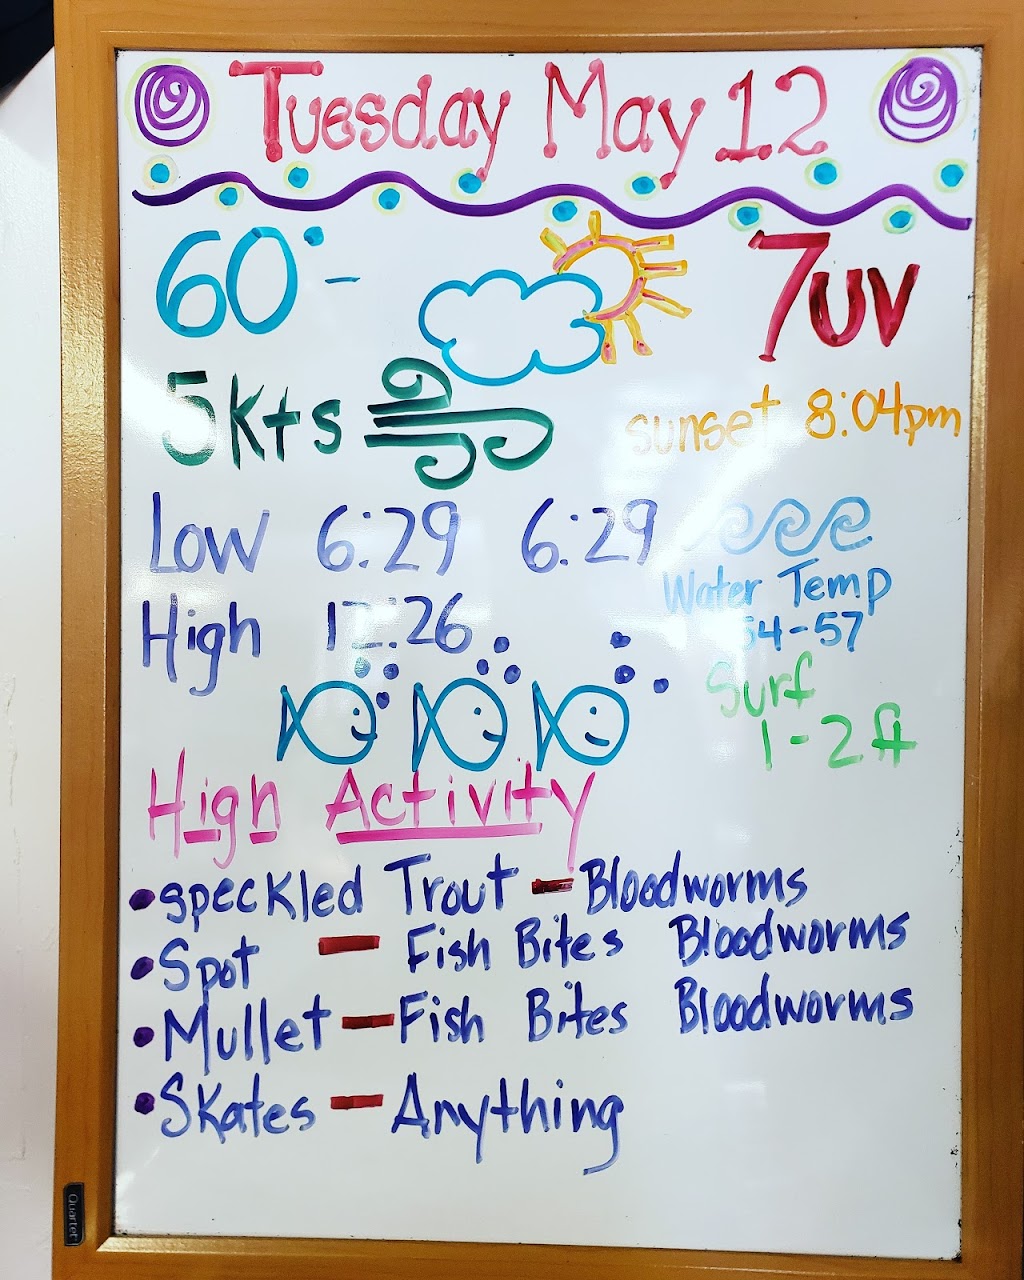 Tuesday May 12
60°-
7uv
5kts
sunset 8:04pm
Low 6:29 6:29
High 12:26
Water Temp
54-57
Surf
1-2ft
High Activity
•speckled Trout - Bloodworms
•Spot - Fish Bites Bloodworms
•Mullet - Fish Bites Bloodworms
•Skates - Anything
Quartet